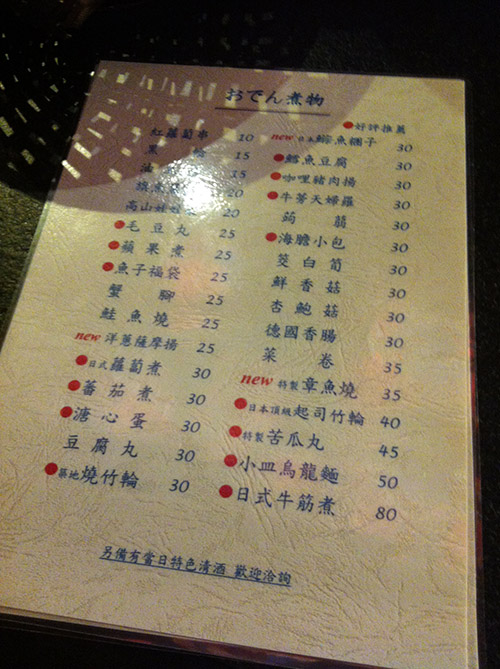 おでん煮物
紅蘿蔔串 10
黑 15
油 15
20
高山娃娃 20
毛豆丸 25
蘋果煮 25
魚子福袋 25
蟹腳 25
鮭魚燒 25
new 洋蔥薩摩揚 25
日式蘿蔔煮 30
蕃茄煮 30
溏心蛋 30
豆腐丸 30
築地燒竹輪 30
好評推薦
new 日本鱈魚糰子 30
鱈魚豆腐 30
咖哩豬肉揚 30
牛芳天婦羅 30
蒟蒻 30
海膽小包 30
筊白筍 30
鮮香菇 30
杏鮑菇 30
德國香腸 30
菜卷 35
new 特製章魚燒 35
日本頂級起司竹輪 40
特製苦瓜丸 45
小皿烏龍麵 50
日式牛筋煮 80
另備有當日特色清酒 歡迎洽詢